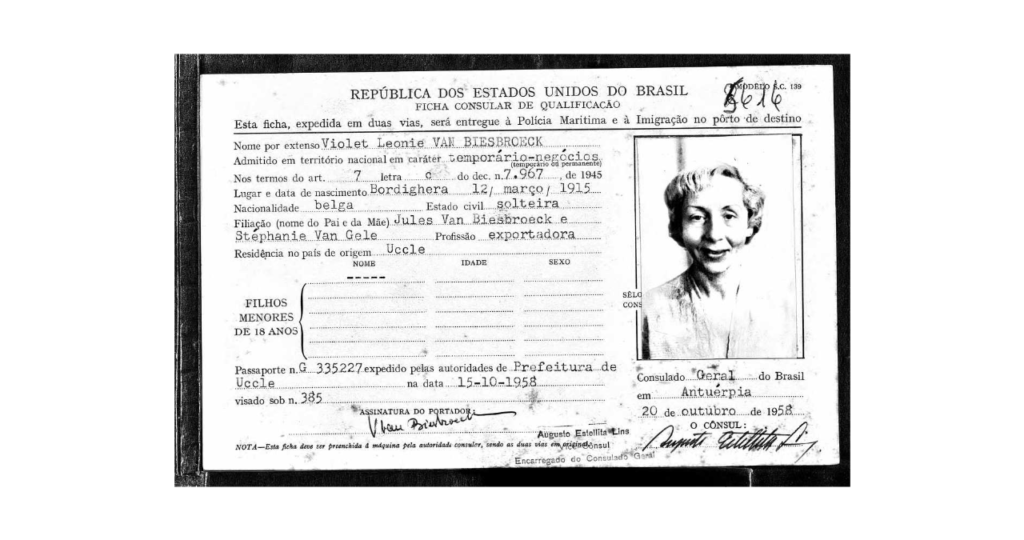 MODÊLO S.C. 139
5616
REPÚBLICA DOS ESTADOS UNIDOS DO BRASIL
FICHA CONSULAR DE QUALIFICAÇÃO
Esta ficha, expedida em duas vias, será entregue à Polícia Marítima e à Imigração no pôrto de destino
Nome por extenso Violet Leonie VAN BIESBROECK
Admitido em território nacional em caráter temporário-negócios
(temporário ou permanente)
Nos termos do art. 7 letra c do dec. n. 7.967, de 1945
Lugar e data de nascimento Bordighera 12/ março/ 1915
Nacionalidade belga Estado civil solteira
Filiação (nome do Pai e da Mãe) Jules Van Biesbroeck e
Stéphanie Van Gele Profissão exportadora
Residência no país de origem Uccle
NOME IDADE SEXO
-----
FILHOS
MENORES
DE 18 ANOS
SÊLO
CONS
Passaporte n. G 335227 expedido pelas autoridades de Prefeitura de
Uccle na data 15-10-1958
visado sob n. 385
ASSINATURA DO PORTADOR:
VVan Biesbroeck
NOTA—Esta ficha deve ser preenchida à máquina pela autoridade consular, sendo as duas vias em original.
Consulado Geral do Brasil
em Antuérpia
20 de outubro de 1958
O CÔNSUL:
Augusto Estellita Lins
Augusto Estellita Lins
Vice-Cônsul
Encarregado do Consulado Geral